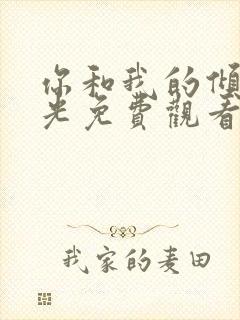 你和我的傾
光免費觀看
我家的麦田